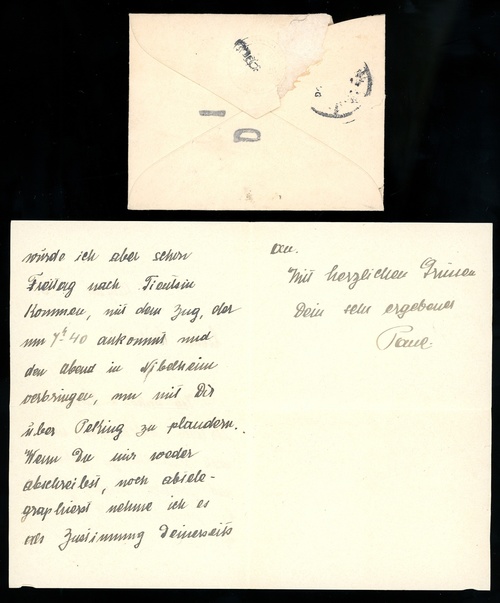 D I
würde ich aber schon
Freitag nach Tientsin
kommen, mit dem Zug, der
um 7 h 40 ankommt und
den Abend in Nibelheim
verbringen, um mit Dir
über Peking zu plaudern.
Wenn Du mir weder
abschreibst, noch abtele-
graphierst nehme ich es
als Zustimmung Deinerseits
an.
Mit herzlichen Grüssen
Dein sehr ergebener
Paul.